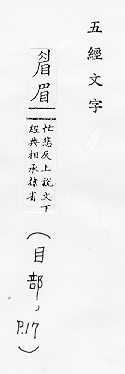 五經文字
眉
忙悲反上說文下
經典相承隸省
(目部, P.17)